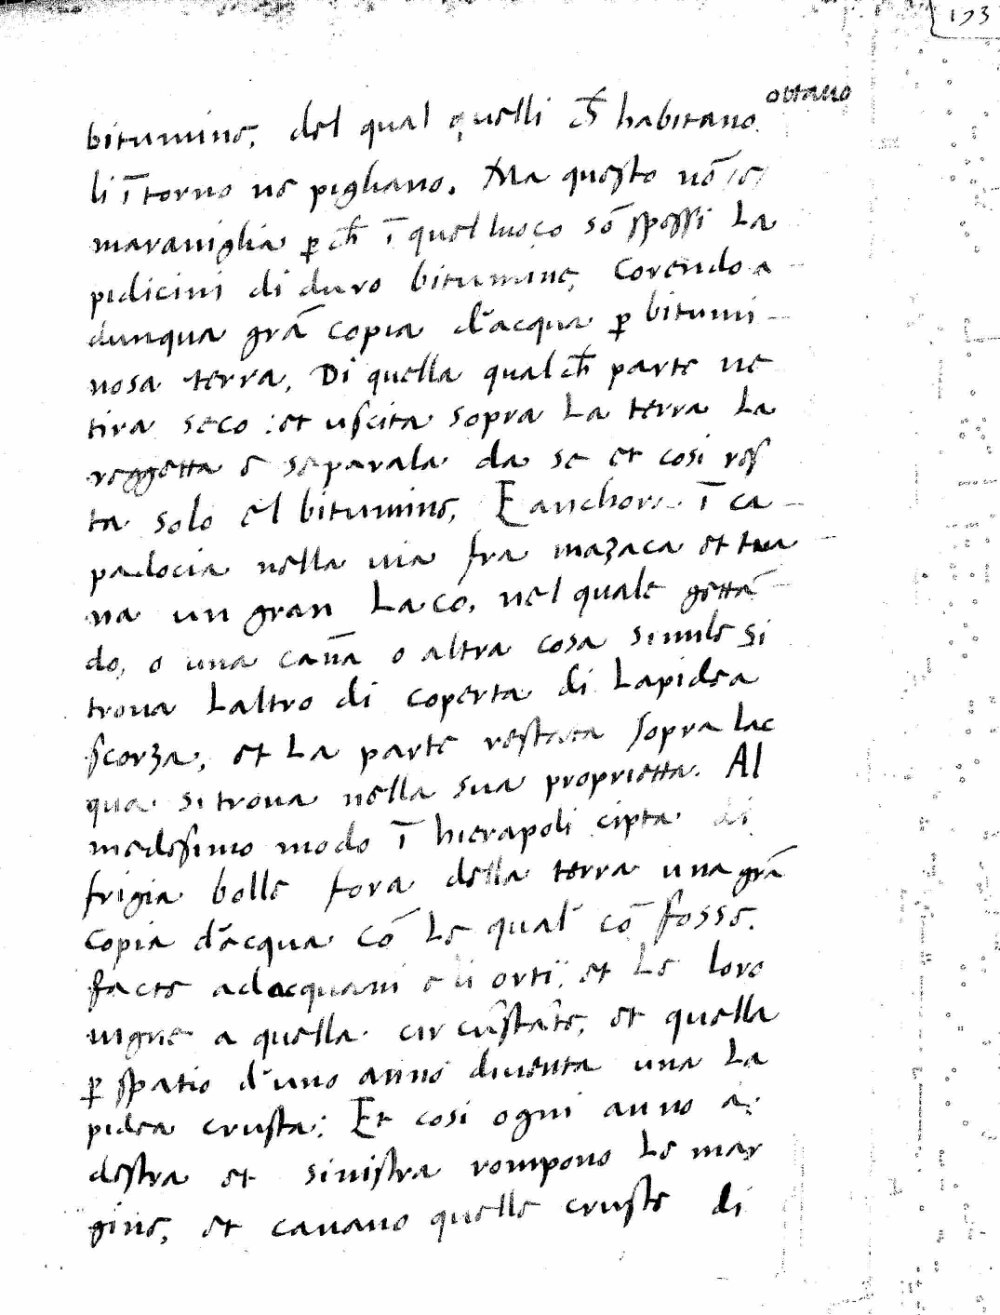 173
ottauo
bitumine, del qual quelli ch̄ habitano
li ī torno ne pigliano. Ma questo nō e
marauiglia p̱ ch̄ ī quel luoco sō spessi La
pidicini di duro bitumine, Corendo a
dunqua grā copia d'acqua p̱ bitumi-
nosa terra, Di quella qualch̄ parte ne
tira seco: et uscita sopra La terra La
reggetta e separala da se et cosi res
ta solo el bitumine, E anchora ī ca-
padocia nella uia fra mazaca et tua
na un gran Laco, nel quale gettā
do, o una can̄a o altra cosa simile si
troua Laltro di coperta di Lapidea
scorza, et La parte restata sopra lac
qua si troua nella sua proprietta. Al
medesimo modo ī hierapoli cipta di
frigia bolle fora della terra una grā
Copia d'acqua cō Le qual' cō fosse
facte adacquam e li orti, et Le loro
uigne a quella circūstāte, et quella
p̱ spatio d'uno anno diuenta una La
pidea crusta: Et cosi ogni anno a
destra et sinistra rompono Le mar
gine, et cauano quelle cruste di